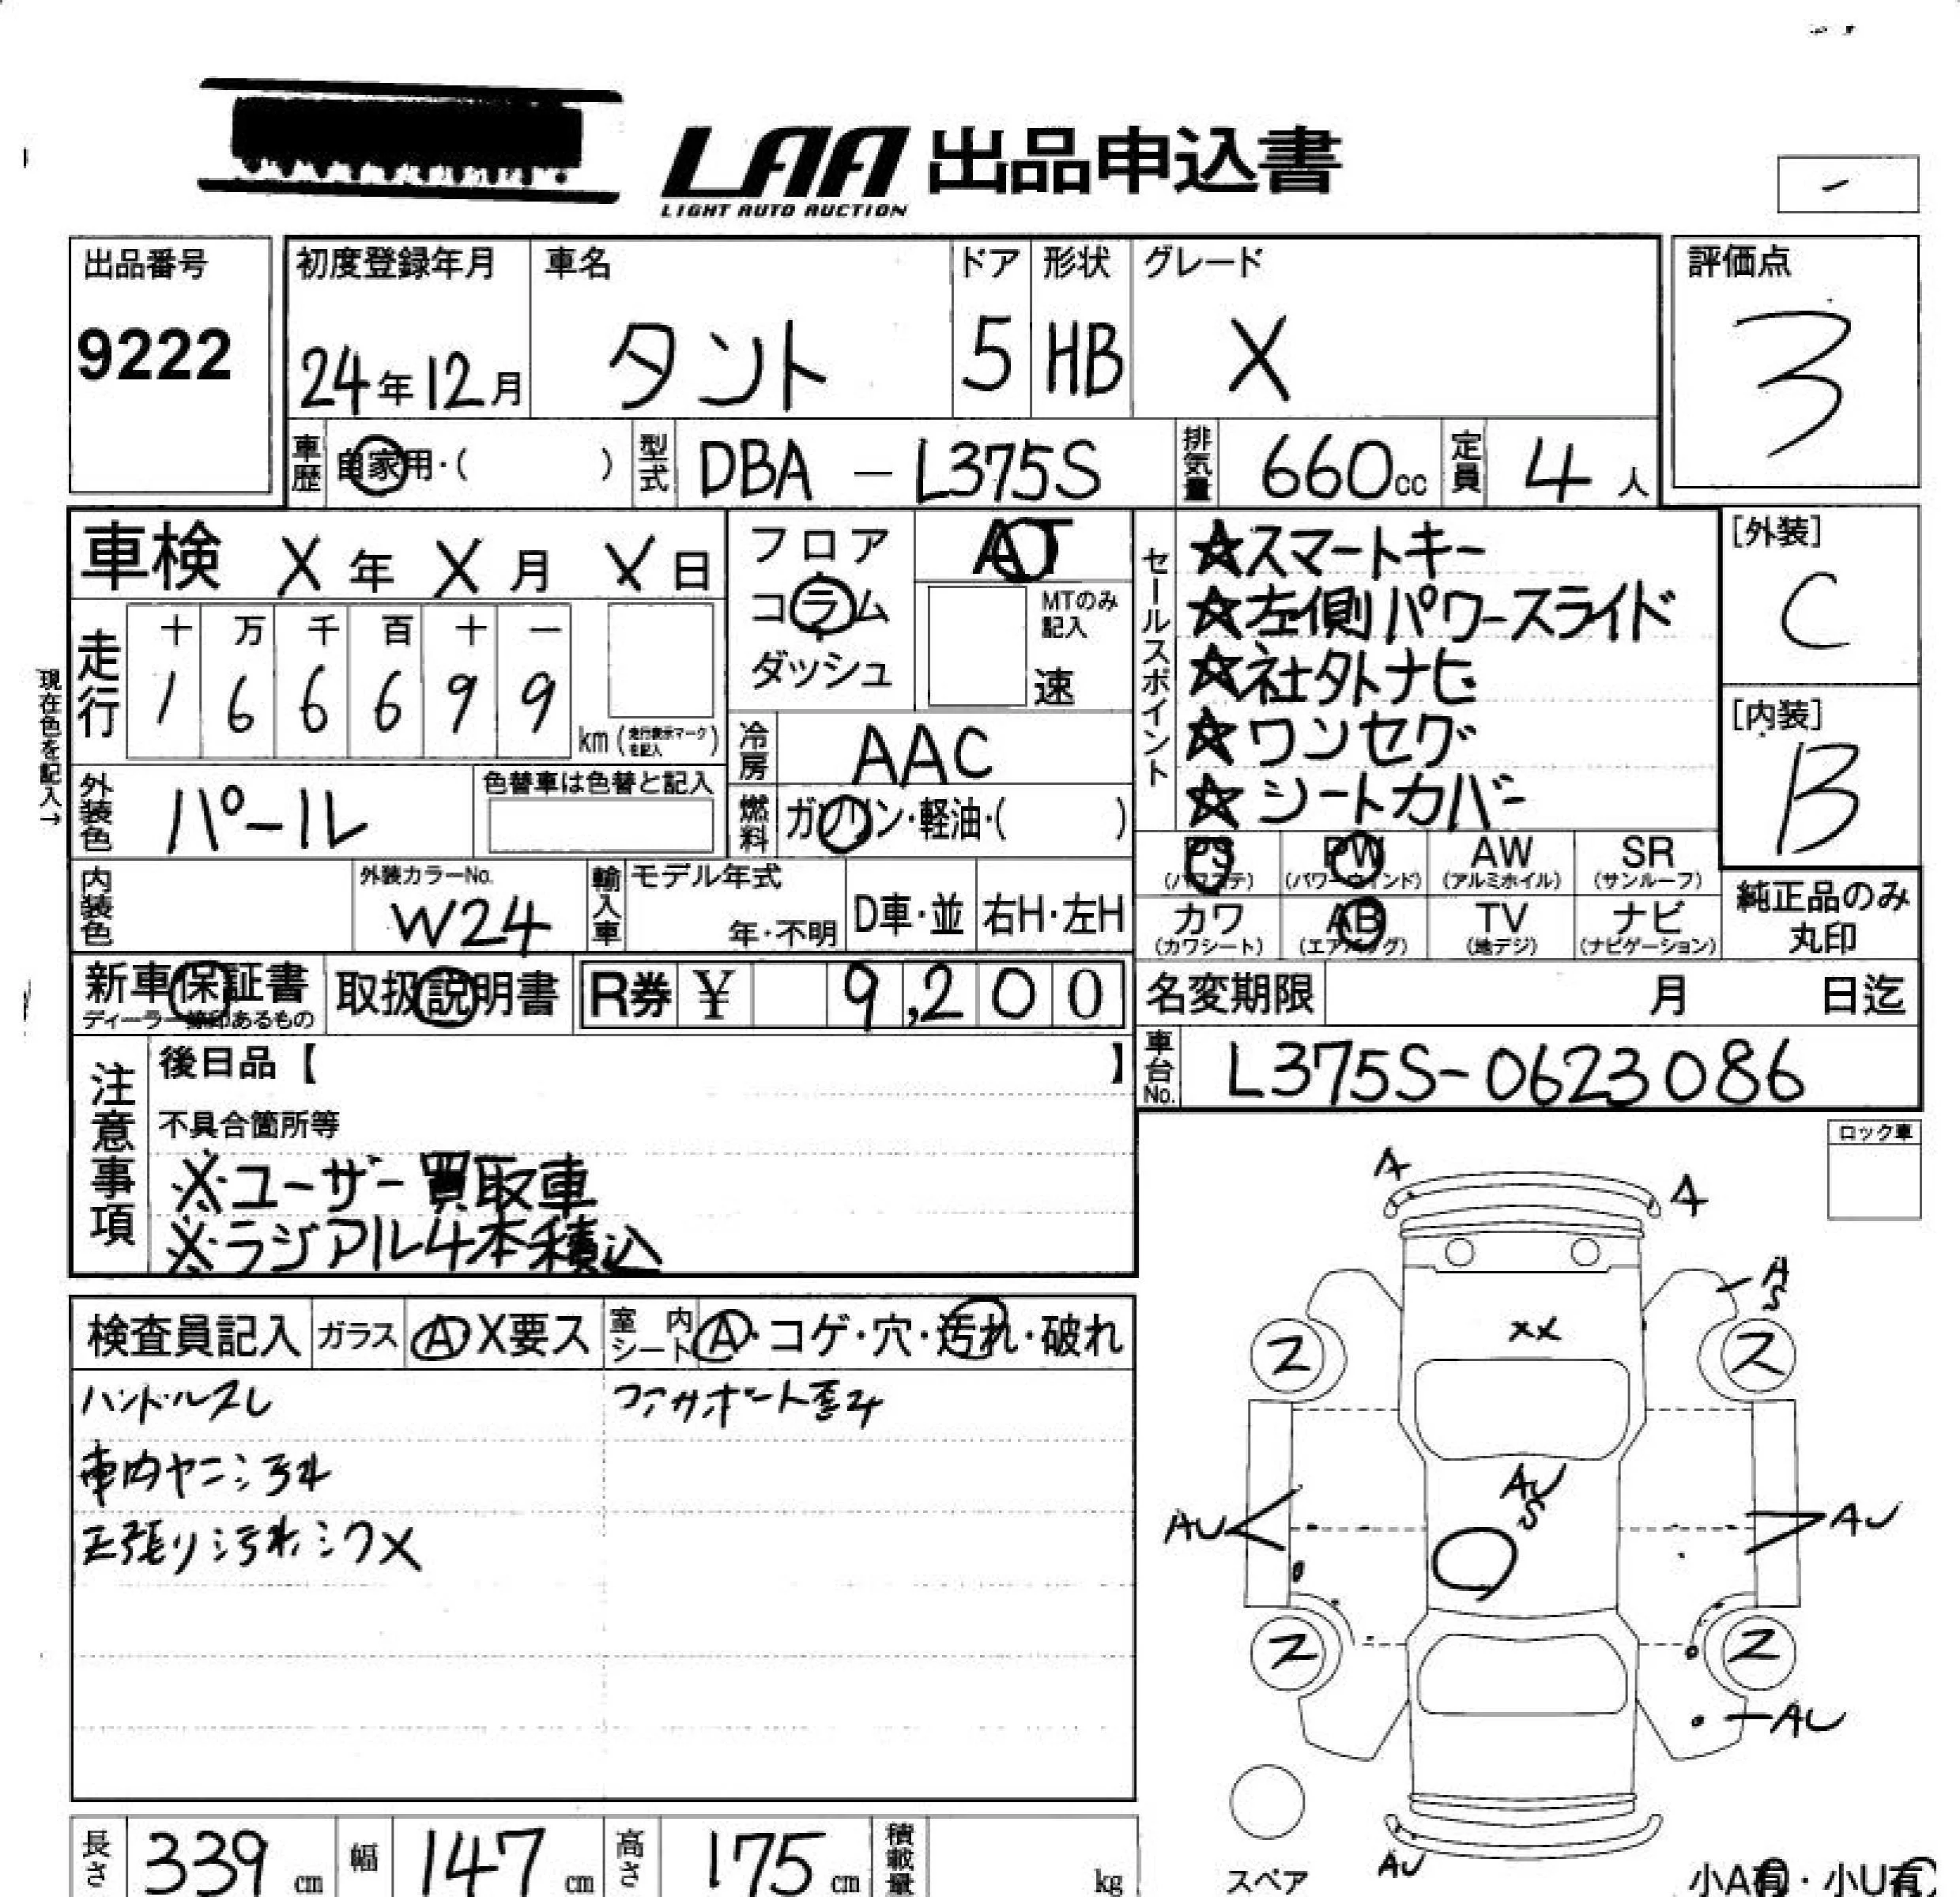 LAA 出品申込書
LIGHT AUTO AUCTION
出品番号
9222
初度登録年月
24年12月
車名
タント
ドア
5
形状
HB
グレード
X
評価点
3
車歴
自家用・( )
型式
DBA - L375S
排気量
660cc
定員
4人
車検 X年X月X日
フロア
コラム
ダッシュ
AT
MTのみ記入
速
セールスポイント
☆スマートキー
☆左側パワースライド
☆社外ナビ
☆ワンセグ
☆シートカバー
[外装]
C
[内装]
B
現在色を記入→
走行
十 万 千 百 十 一
1 6 6 6 9 9
km(走行表示マークを記入)
冷房
AAC
外装色
パール
色替車は色替と記入
燃料
ガソリン・軽油・( )
PS
(パワステ)
PW
(パワーウィンド)
AW
(アルミホイル)
SR
(サンルーフ)
内装色
外装カラーNo.
W24
輸入車
モデル年式
年・不明
D車・並
右H・左H
カワ
(カワシート)
AB
(エアバッグ)
TV
(地デジ)
ナビ
(ナビゲーション)
純正品のみ
丸印
新車保証書
ディーラー捺印あるもの
取扱説明書
R券 ¥ 9,200
名変期限 月 日迄
車台No.
L375S-0623086
注意事項
後日品【 】
不具合箇所等
※ユーザー買取車
※ラジアル4本積込
ロック車
検査員記入
ガラス
A X要ス
室内シート
A・コゲ・穴・汚れ・破れ
ハンドルスレ
車内ヤニ汚れ
天張り汚れシワX
コアサポート歪み
A
A
A
S
XX
ス
ス
AU
S
AU
AU
ス
ス
AU
AU
スペア
小A有・小U有
長さ
339cm
幅
147cm
高さ
175cm
積載量
kg